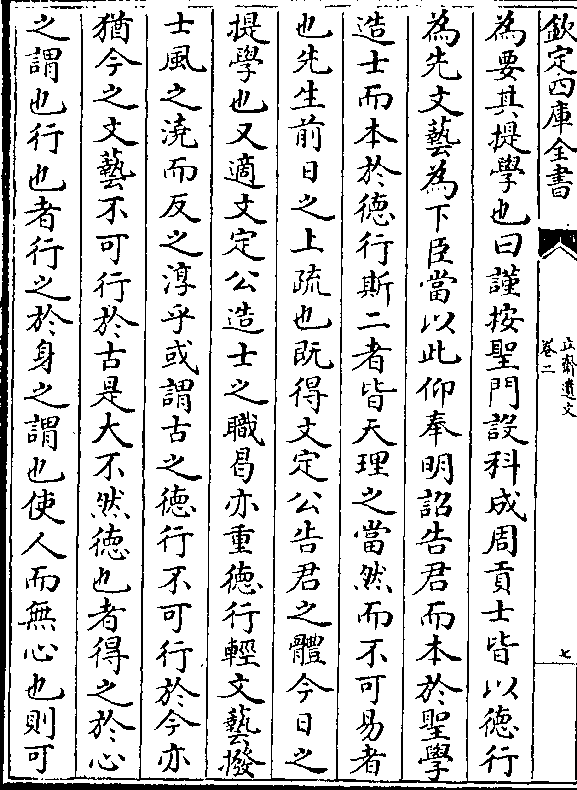 欽定四庫全書
立齋遺文
卷二
七
為要其提學也曰謹按聖門設科成周貢士皆以德行
為先文藝為下臣當以此仰奉明詔告君而本於聖學
造士而本於德行斯二者皆天理之當然而不可易者
也先生前日之上疏也既得文定公告君之體今日之
提學也又適文定公造士之職曷亦重德行輕文藝撥
士風之澆而反之淳乎或謂古之德行不可行於今亦
猶今之文藝不可行於古是大不然德也者得之於心
之謂也行也者行之於身之謂也使人而無心也則可